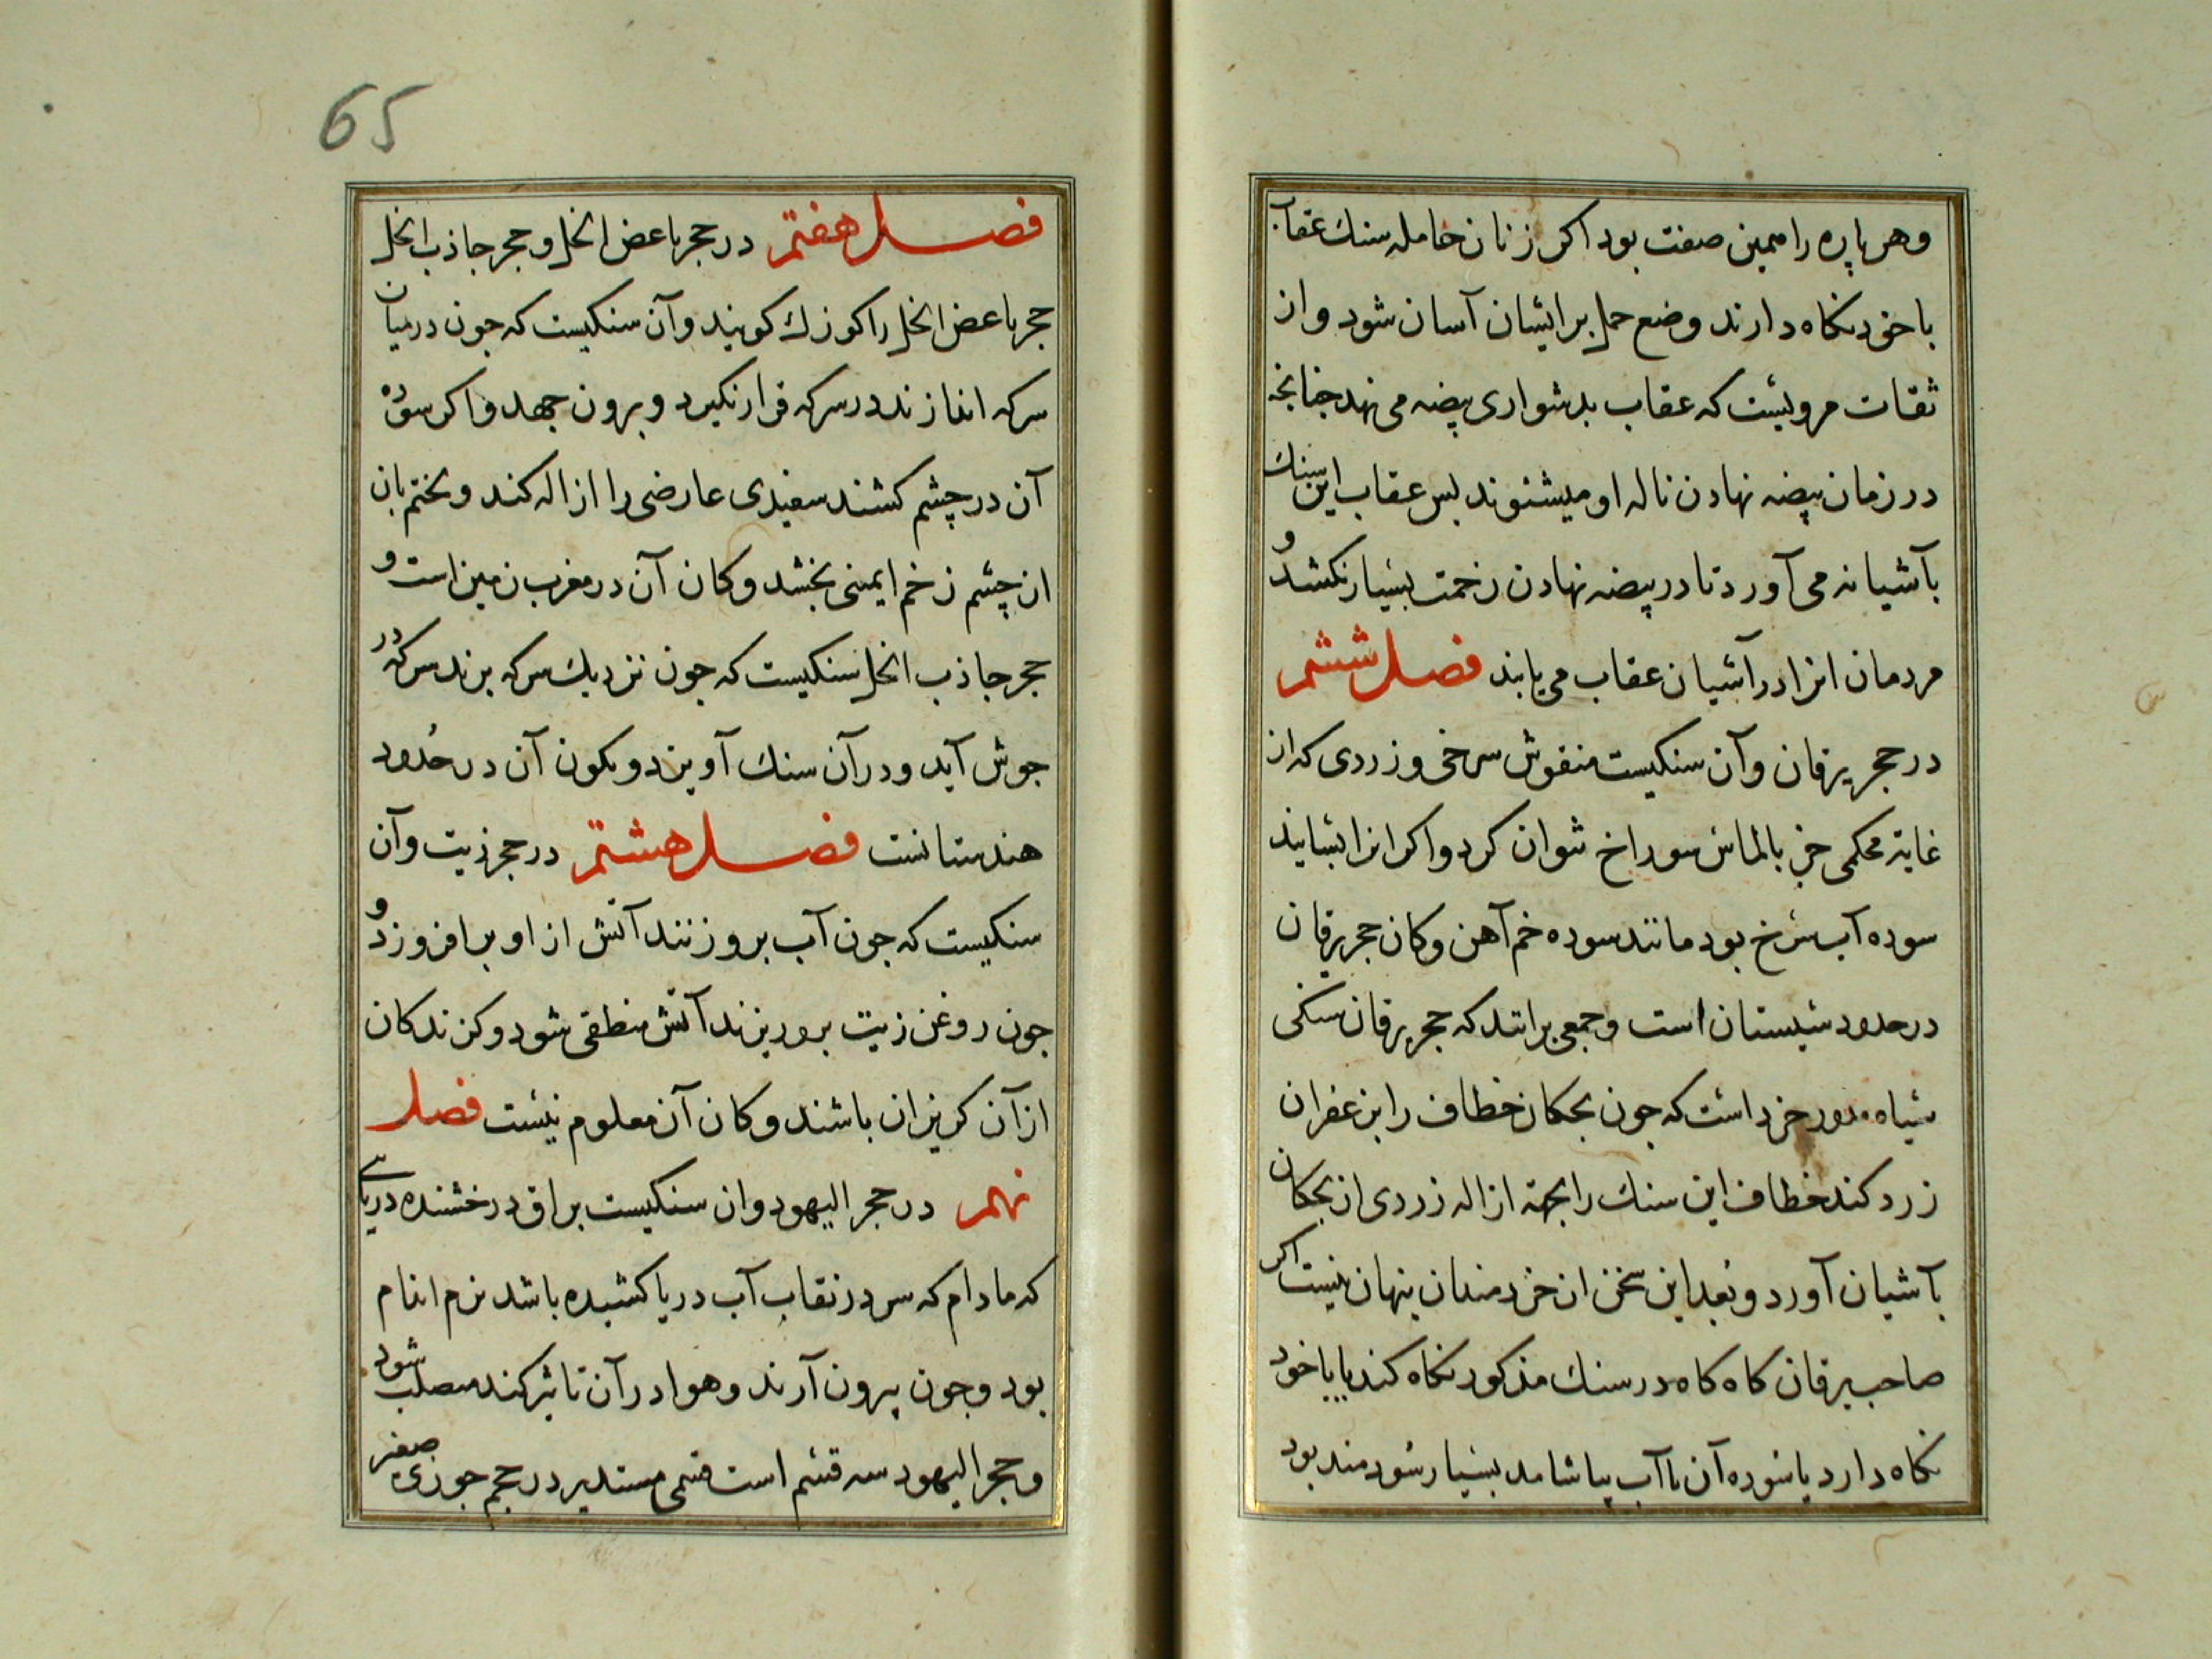 وهر پاره را همین صفت بود اکر زنان حامله سنك عقاب
با خود نکاه دارند وضع حمل بر ایشان آسان شود و از
ثقات مرویست که عقاب بدشواری بیضه می نهد جنانجه
در زمان بیضه نهادن ناله او میشنوند بس عقاب این سنك
بآشیانه می آورد تا در بیضه نهادن زحمت بسیار نکشد و
مردمان انرا در آشیان عقاب می یابند فصل ششم
در حجر یرقان وآن سنکیست منقوش سرخی و زردی که از
غایة محکمی جز بالماس سوراخ نتوان کرد واکر انرا بسایند
سوده آب سرخ بود مانند سوده خم آهن وکان حجر یرقان
در حدود سیستان است وجمعی برانند که حجر یرقان سنکی
سیاه مدور خرد است که جون بجکان خطاف را بزعفران
زرد کنند خطاف این سنك را بجهة ازاله زردی از بجکان
بآشیان آورد و بعد این سخن از خردمندان پنهان نیست اکر
صاحب یرقان کاه کاه در سنك مذکور نکاه کند یا با خود
نکاه دارد یا سوده آن با آب بیاشامد بسیار سودمند بود
65
فصل هفتم در حجر باغض الخل و حجر جاذب الخل
حجر باغض الخل را کوزك کویند وآن سنکیست که جون در میان
سرکه اندازند در سرکه قرار نکیرد و برون جهد واکر سوده
آن در چشم کشند سفیدی عارضی را ازاله کند و تختم بان
از چشم زخم ایمنی بخشد وکان آن در مغرب زمین است و
حجر جاذب الخل سنکیست که جون نزدیك سرکه برند سرکه در
جوش آید و در آن سنك آویزد و تکون آن در حدود
هندستانست فصل هشتم در حجر زیت وآن
سنکیست که جون آب برو زنند آتش از او بر افروزد و
جون روغن زیت برو ریزند آتش منطفی شود و کزندکان
از آن کریزان باشند وکان آن معلوم نیست فصل
نهم در حجر الیهود وان سنکیست براق درخشنده دریایی
که مادام که سر در نقاب آب دریا کشیده باشد نرم اندام
بود وجون بیرون آرند وهوا در آن تاثیر کند مصلب شود
وحجر الیهود سه قسم است قسمی مستدیر در حجم جوزی صغیر